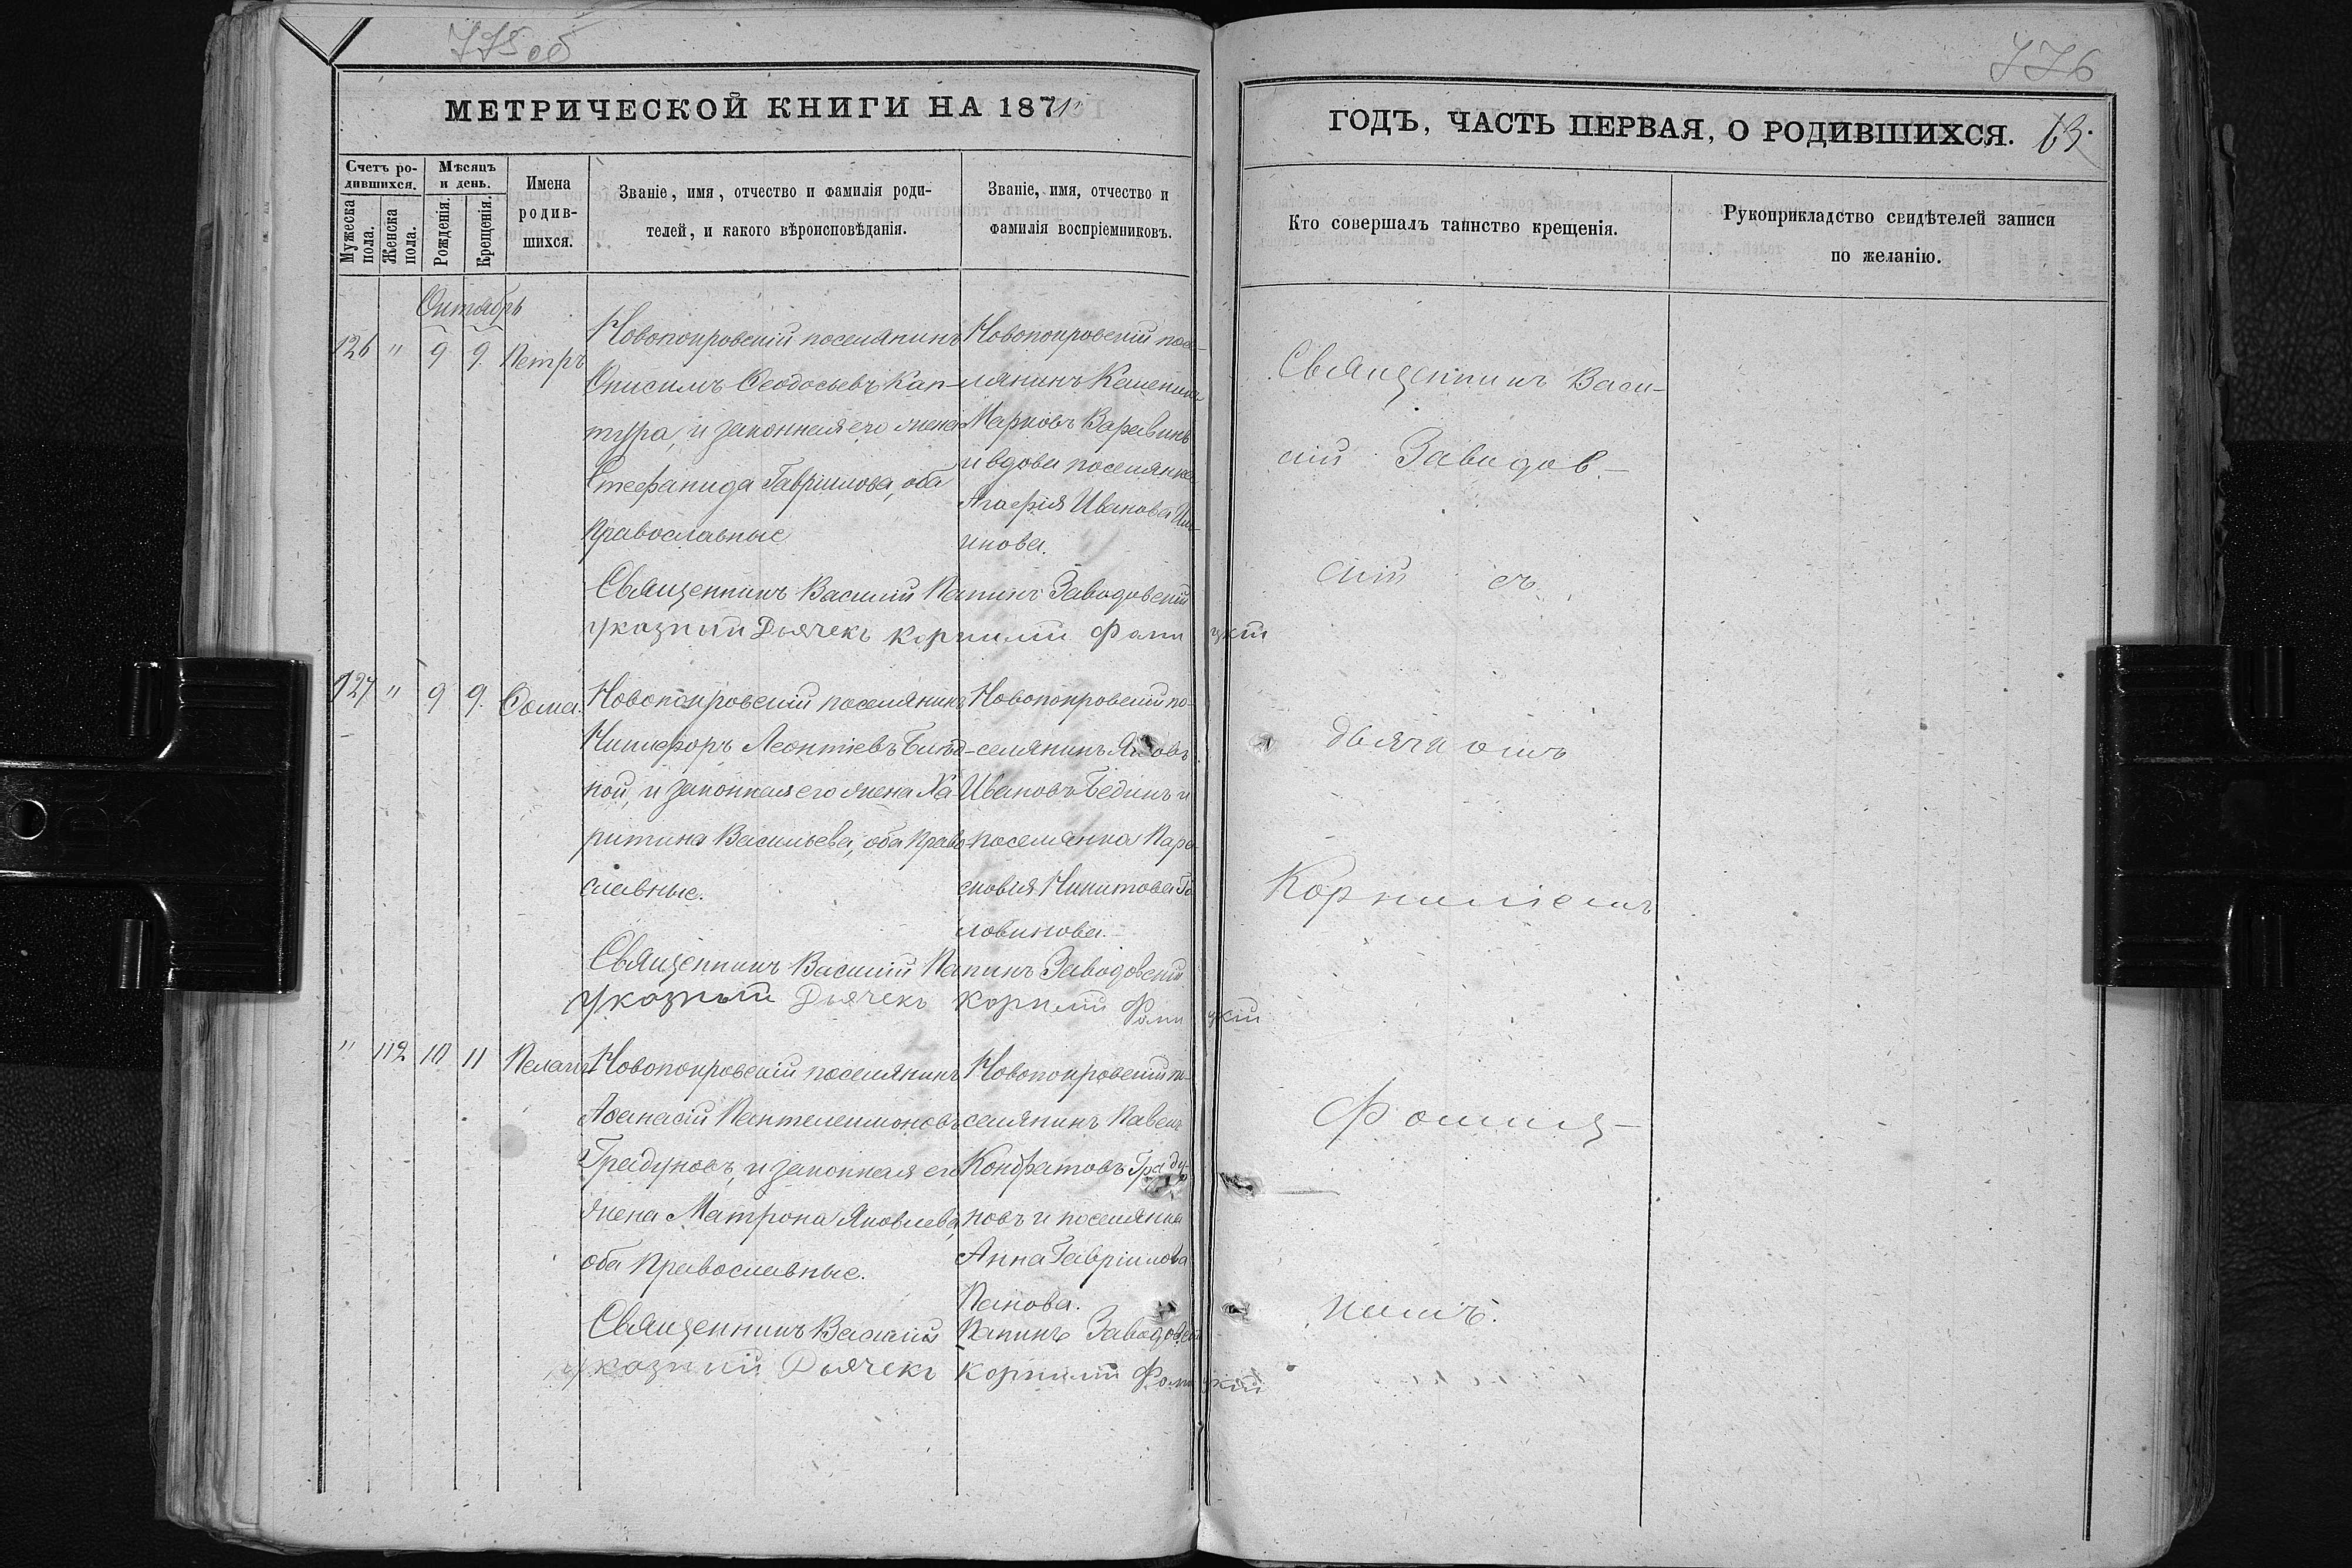 775 об
МЕТРИЧЕСКОЙ КНИГИ НА 1871
Счетъ ро-
дившихся.
Мужеска
пола.
Женска
пола.
Мѣсяцъ
и день.
Рожденія.
Крещенія.
Имена
родив-
шихся.
Званіе, имя, отчество и фамилія роди-
телей, и какого вѣроисповѣданія.
Званіе, имя, отчество и
фамилія воспріемниковъ.
Октябрь
126 " 9 9. Петръ
Новопокровскій поселянинъ
Онисимъ Ѳеодосьевъ Кап-
тура, и законная его жена
Стефанида Гавріилова, оба
Православные
Новопокровскій посе-
лянинъ
Марковъ Варавинъ
и вдова поселянка
Агафія Иванова
инова.
Священникъ Василій Папинъ Заводовскій
указный Дьячекъ Корнилій Фомицкій
127 " 9 9. Ѳома.
Новопокровскій поселянинъ
Никифоръ Леонтіевъ
ной, и законная его жена Ха-
ритина Васильева, оба Право-
славные.
Новопокровскій по-
селянинъ Яковъ
Ивановъ Бединъ и
поселянка Пара-
сковія Никитова Го-
ловинова.
Священникъ Василій Папинъ Заводовскій
указный Дьячекъ Корнилій Фомицкій
" 112 10 11 Пелагія
Новопокровскій поселянинъ
Аѳанасій Пантелеимоновъ
Градуновъ, и законная его
жена Матрона Яковлева,
оба Православные.
Новопокровскій по-
селянинъ Павелъ
Кондратовъ Граду-
новъ и поселянка
Анна Гавріилова
Панова.
Священникъ Василій Папинъ Заводовскій
указный Дьячекъ Корнилій Фомицкій
776
ГОДЪ, ЧАСТЬ ПЕРВАЯ, О РОДИВШИХСЯ. 63.
Кто совершалъ таинство крещенія.
Рукоприкладство свидѣтелей записи
по желанію.
Священникъ Васи-
лій Заводов-
скій съ
дьячкомъ
Корниліемъ
Фомиц-
кимъ.